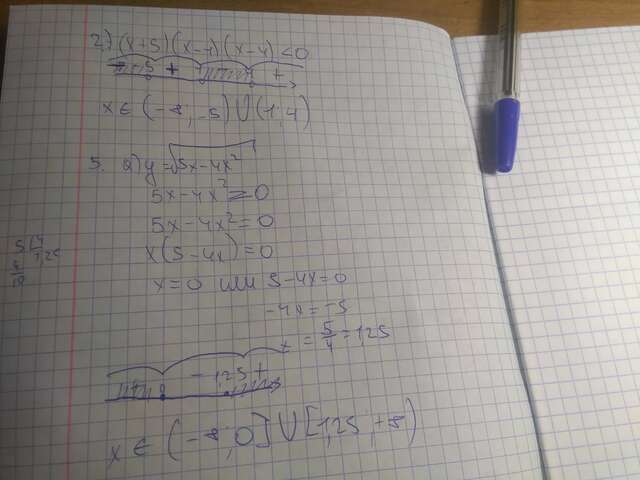 2.) (x+5)(x-1)(x-4)<0
- -5 + +
x ∈ (-∞; -5) ∪ (1; 4)
5. a) y = √5x-4x²
5x-4x² ≥ 0
5x-4x² = 0
x(5-4x) = 0
x=0 или 5-4x=0
-4x=-5
x = 5/4 = 1,25
- 1,25 +
x ∈ (-∞; 0] ∪ [1,25, +∞)